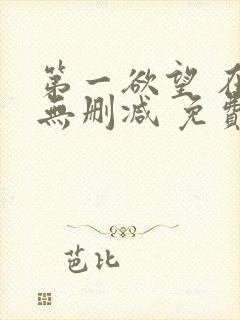 第一欲望 在
無删减 免費
芭比